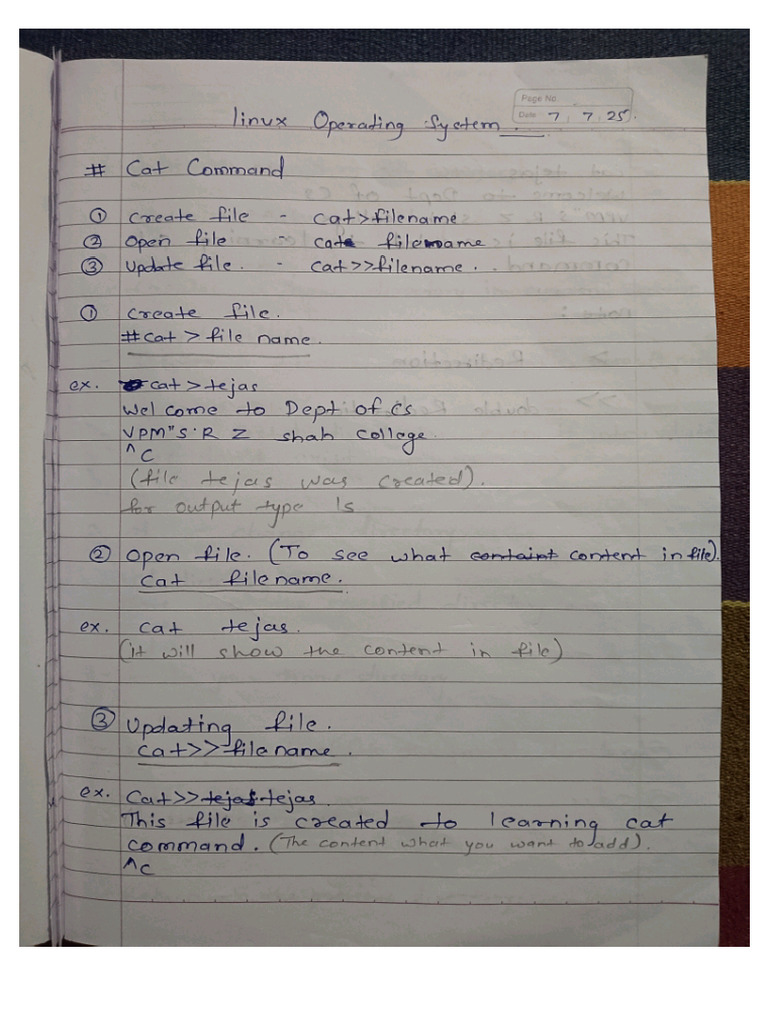 Page No.
Date 7, 7, 25.
linux Operating System.
# Cat Command
① Create file - cat>filename
② Open file - cat filename
③ Update file. - cat>>filename.
① Create file.
#cat > file name.
ex. cat > tejas
Welcome to Dept of Cs
VPM"S. R Z shah college.
^C
(file tejas was created).
for output type ls
② Open file. (To see what containt content in file).
cat filename.
ex. cat tejas.
(it will show the content in file)
③ Updating file.
cat>>filename.
ex. Cat>>tejas tejas.
This file is created to learning cat
command. (The content what you want to add).
^C